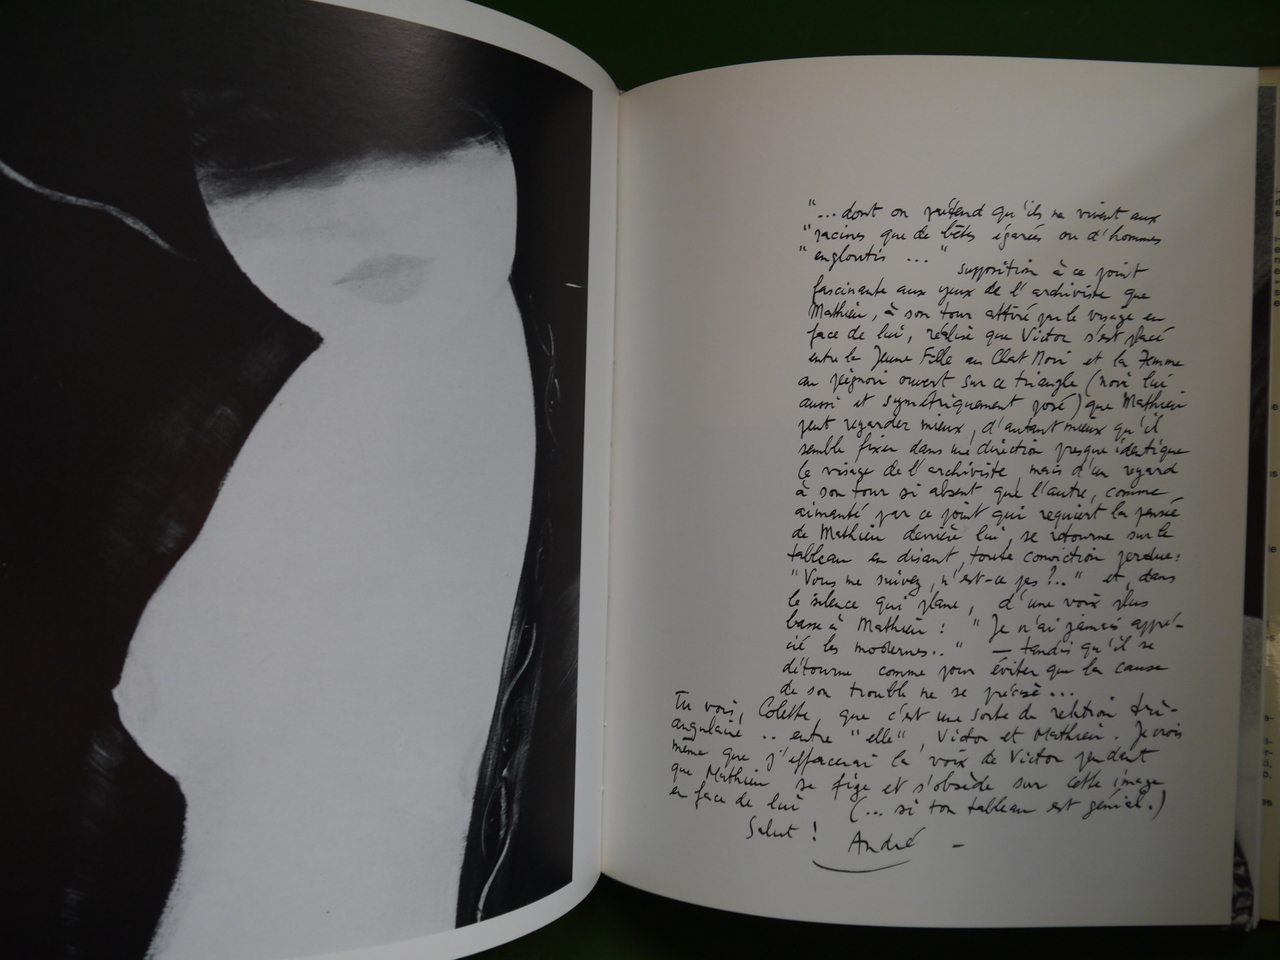 "... dont on prétend qu'ils ne vivent aux
"racines que de bêtes égarées ou d'hommes
"engloutis ... "
supposition à ce point
fascinante aux yeux de l'archiviste que
Mathieu, à son tour attiré par le visage en
face de lui, réalise que Victor s'est placé
entre la Jeune Fille au Chat Noir et la Femme
au peignoir ouvert sur ce triangle (noir lui
aussi et symétriquement posé) que Mathieu
peut regarder mieux, d'autant mieux qu'il
semble fixer dans une direction presque identique
le visage de l'archiviste, mais d'un regard
à son tour si absent que l'autre, comme
aimanté par ce point qui requiert la pensée
de Mathieu derrière lui, se retourne sur le
tableau en disant, toute conviction perdue :
"Vous me suivez, n'est-ce pas ?.." et, dans
le silence qui plane, d'une voix plus
basse à Mathieu : "Je n'ai jamais appré-
cié les modernes.." — tandis qu'il se
détourne comme pour éviter que la cause
de son trouble ne se précise ...
Tu vois, Colette, que c'est une sorte de relation tri-
angulaire .. entre "elle", Victor et Mathieu. Je crois
même que j'effacerai la voix de Victor pendant
que Mathieu se fige et s'obsède sur cette image
en face de lui (... si ton tableau est génial.)
Salut ! André —